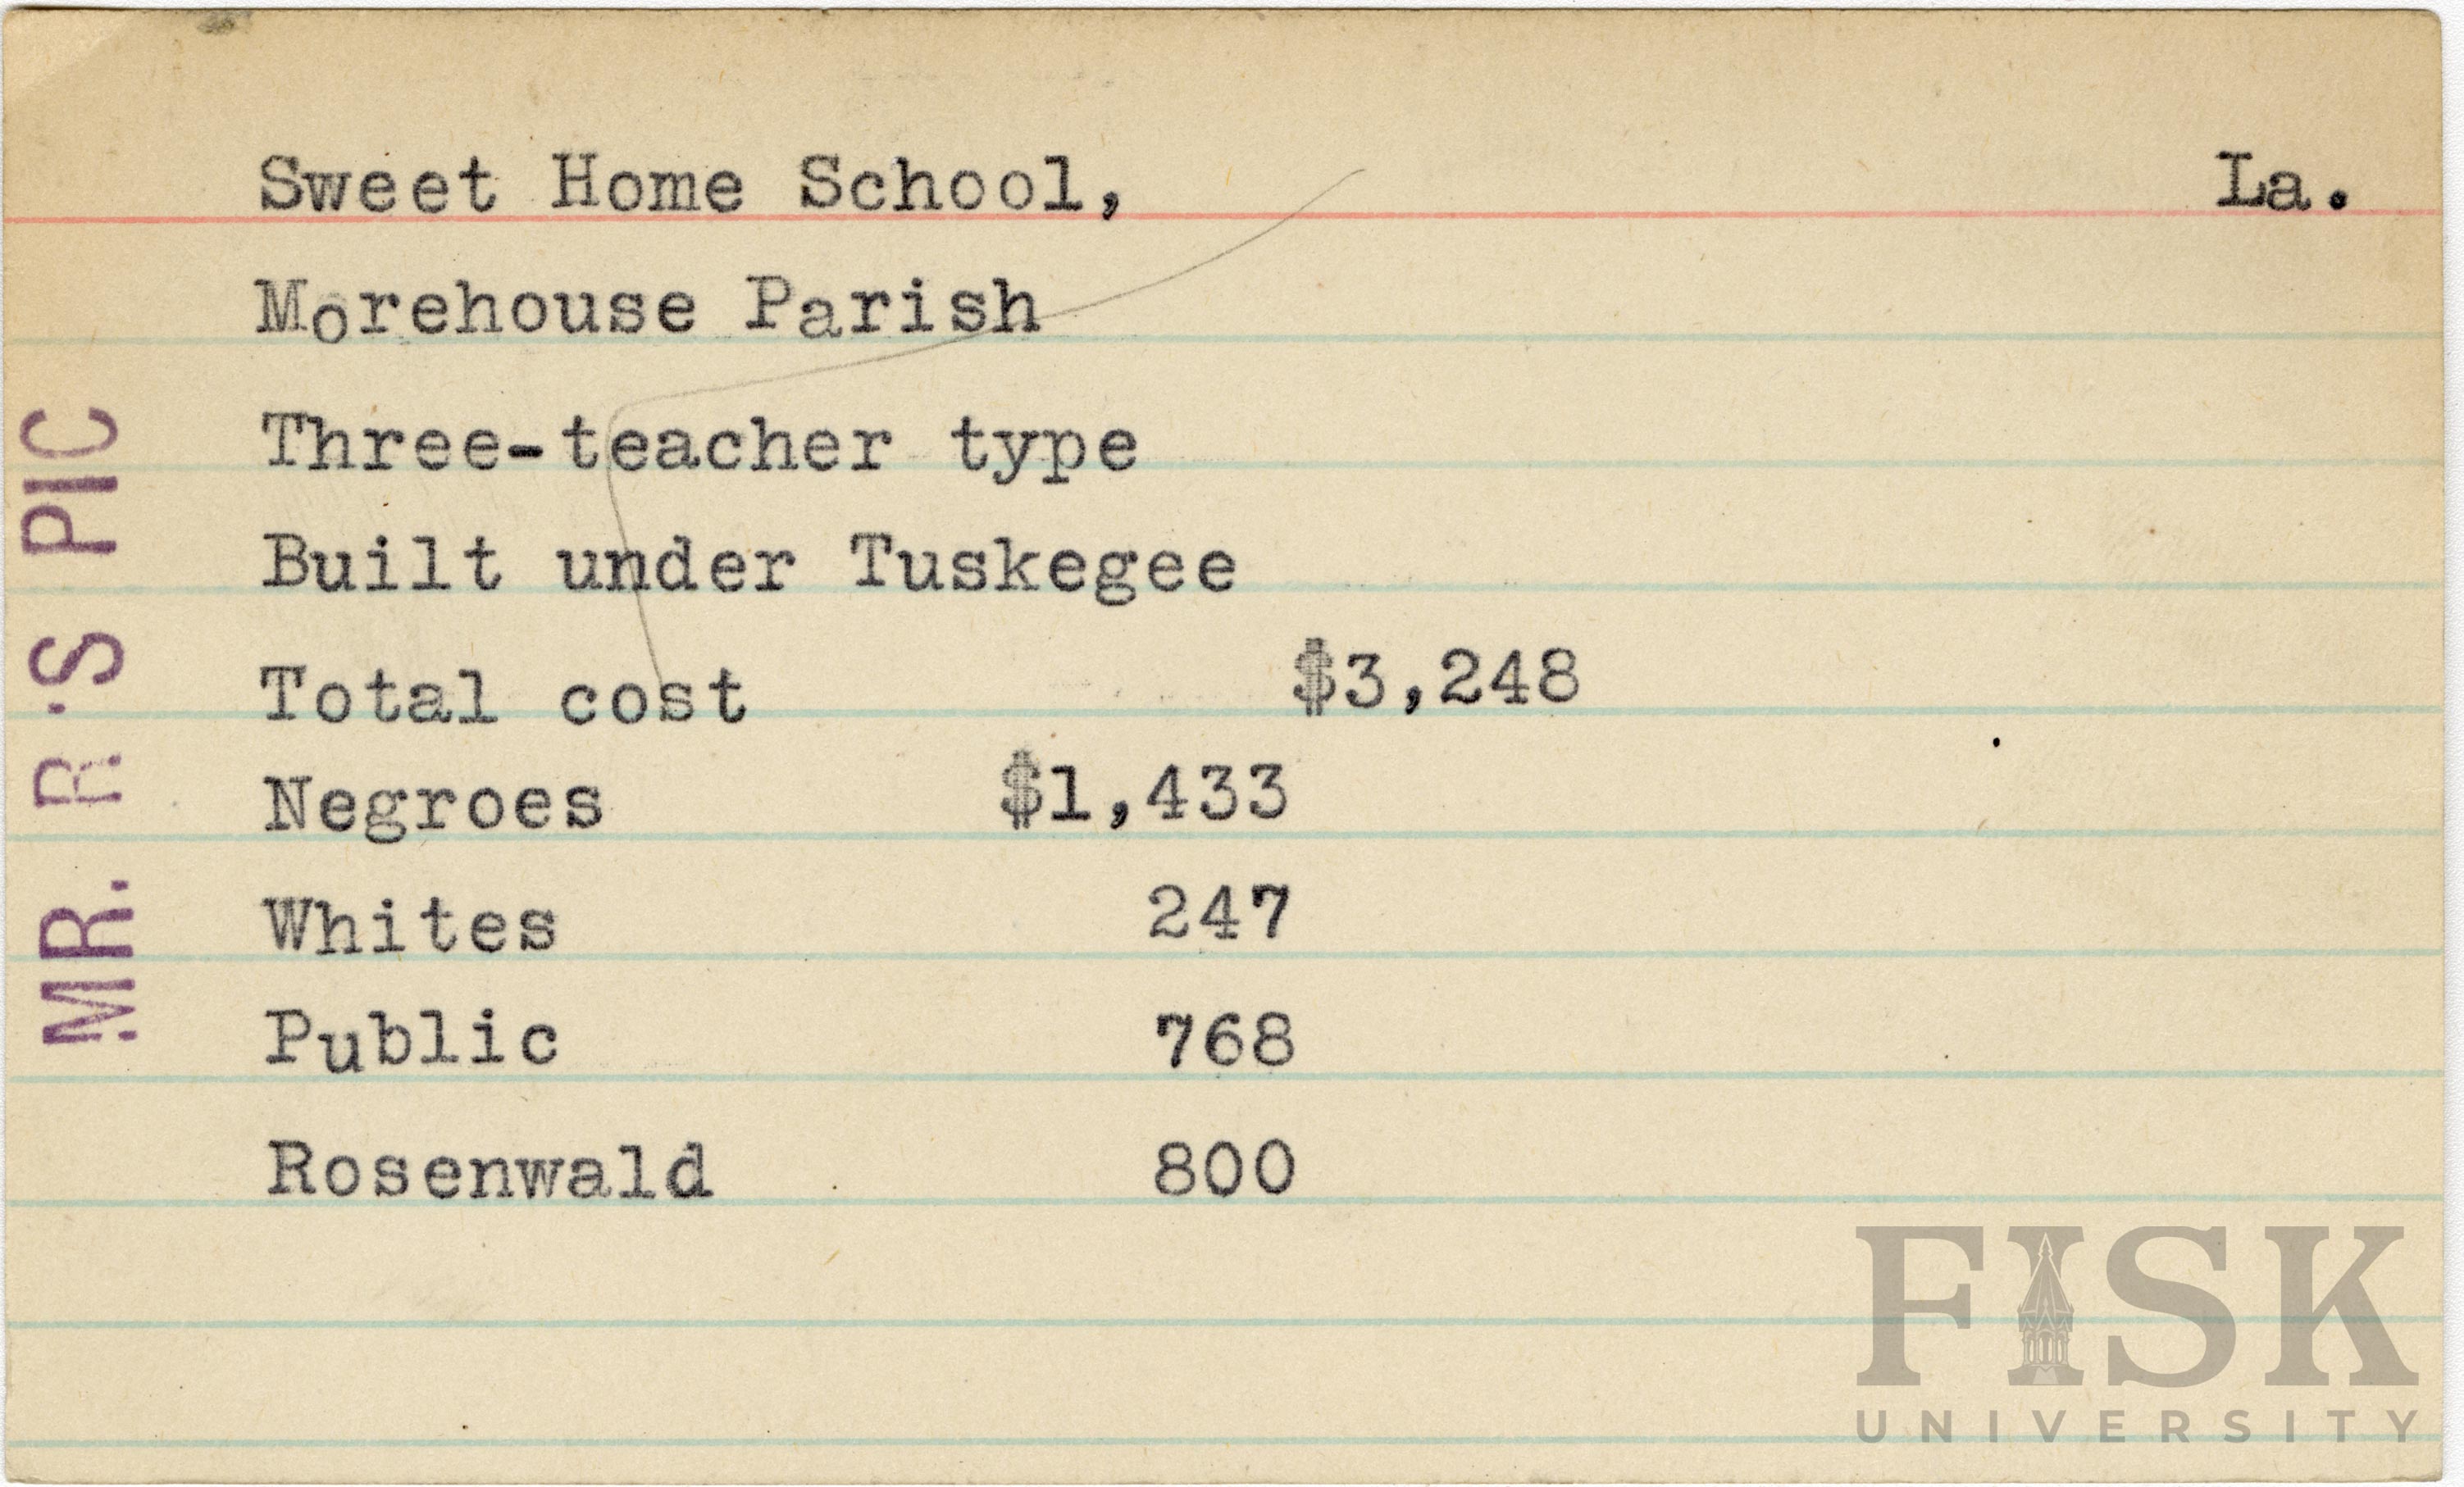 Sweet Home School, La.
Morehouse Parish
Three-teacher type
Built under Tuskegee
Total cost $3,248
Negroes $1,433
Whites 247
Public 768
Rosenwald 800
MR. R'S PIC
FISK
UNIVERSITY